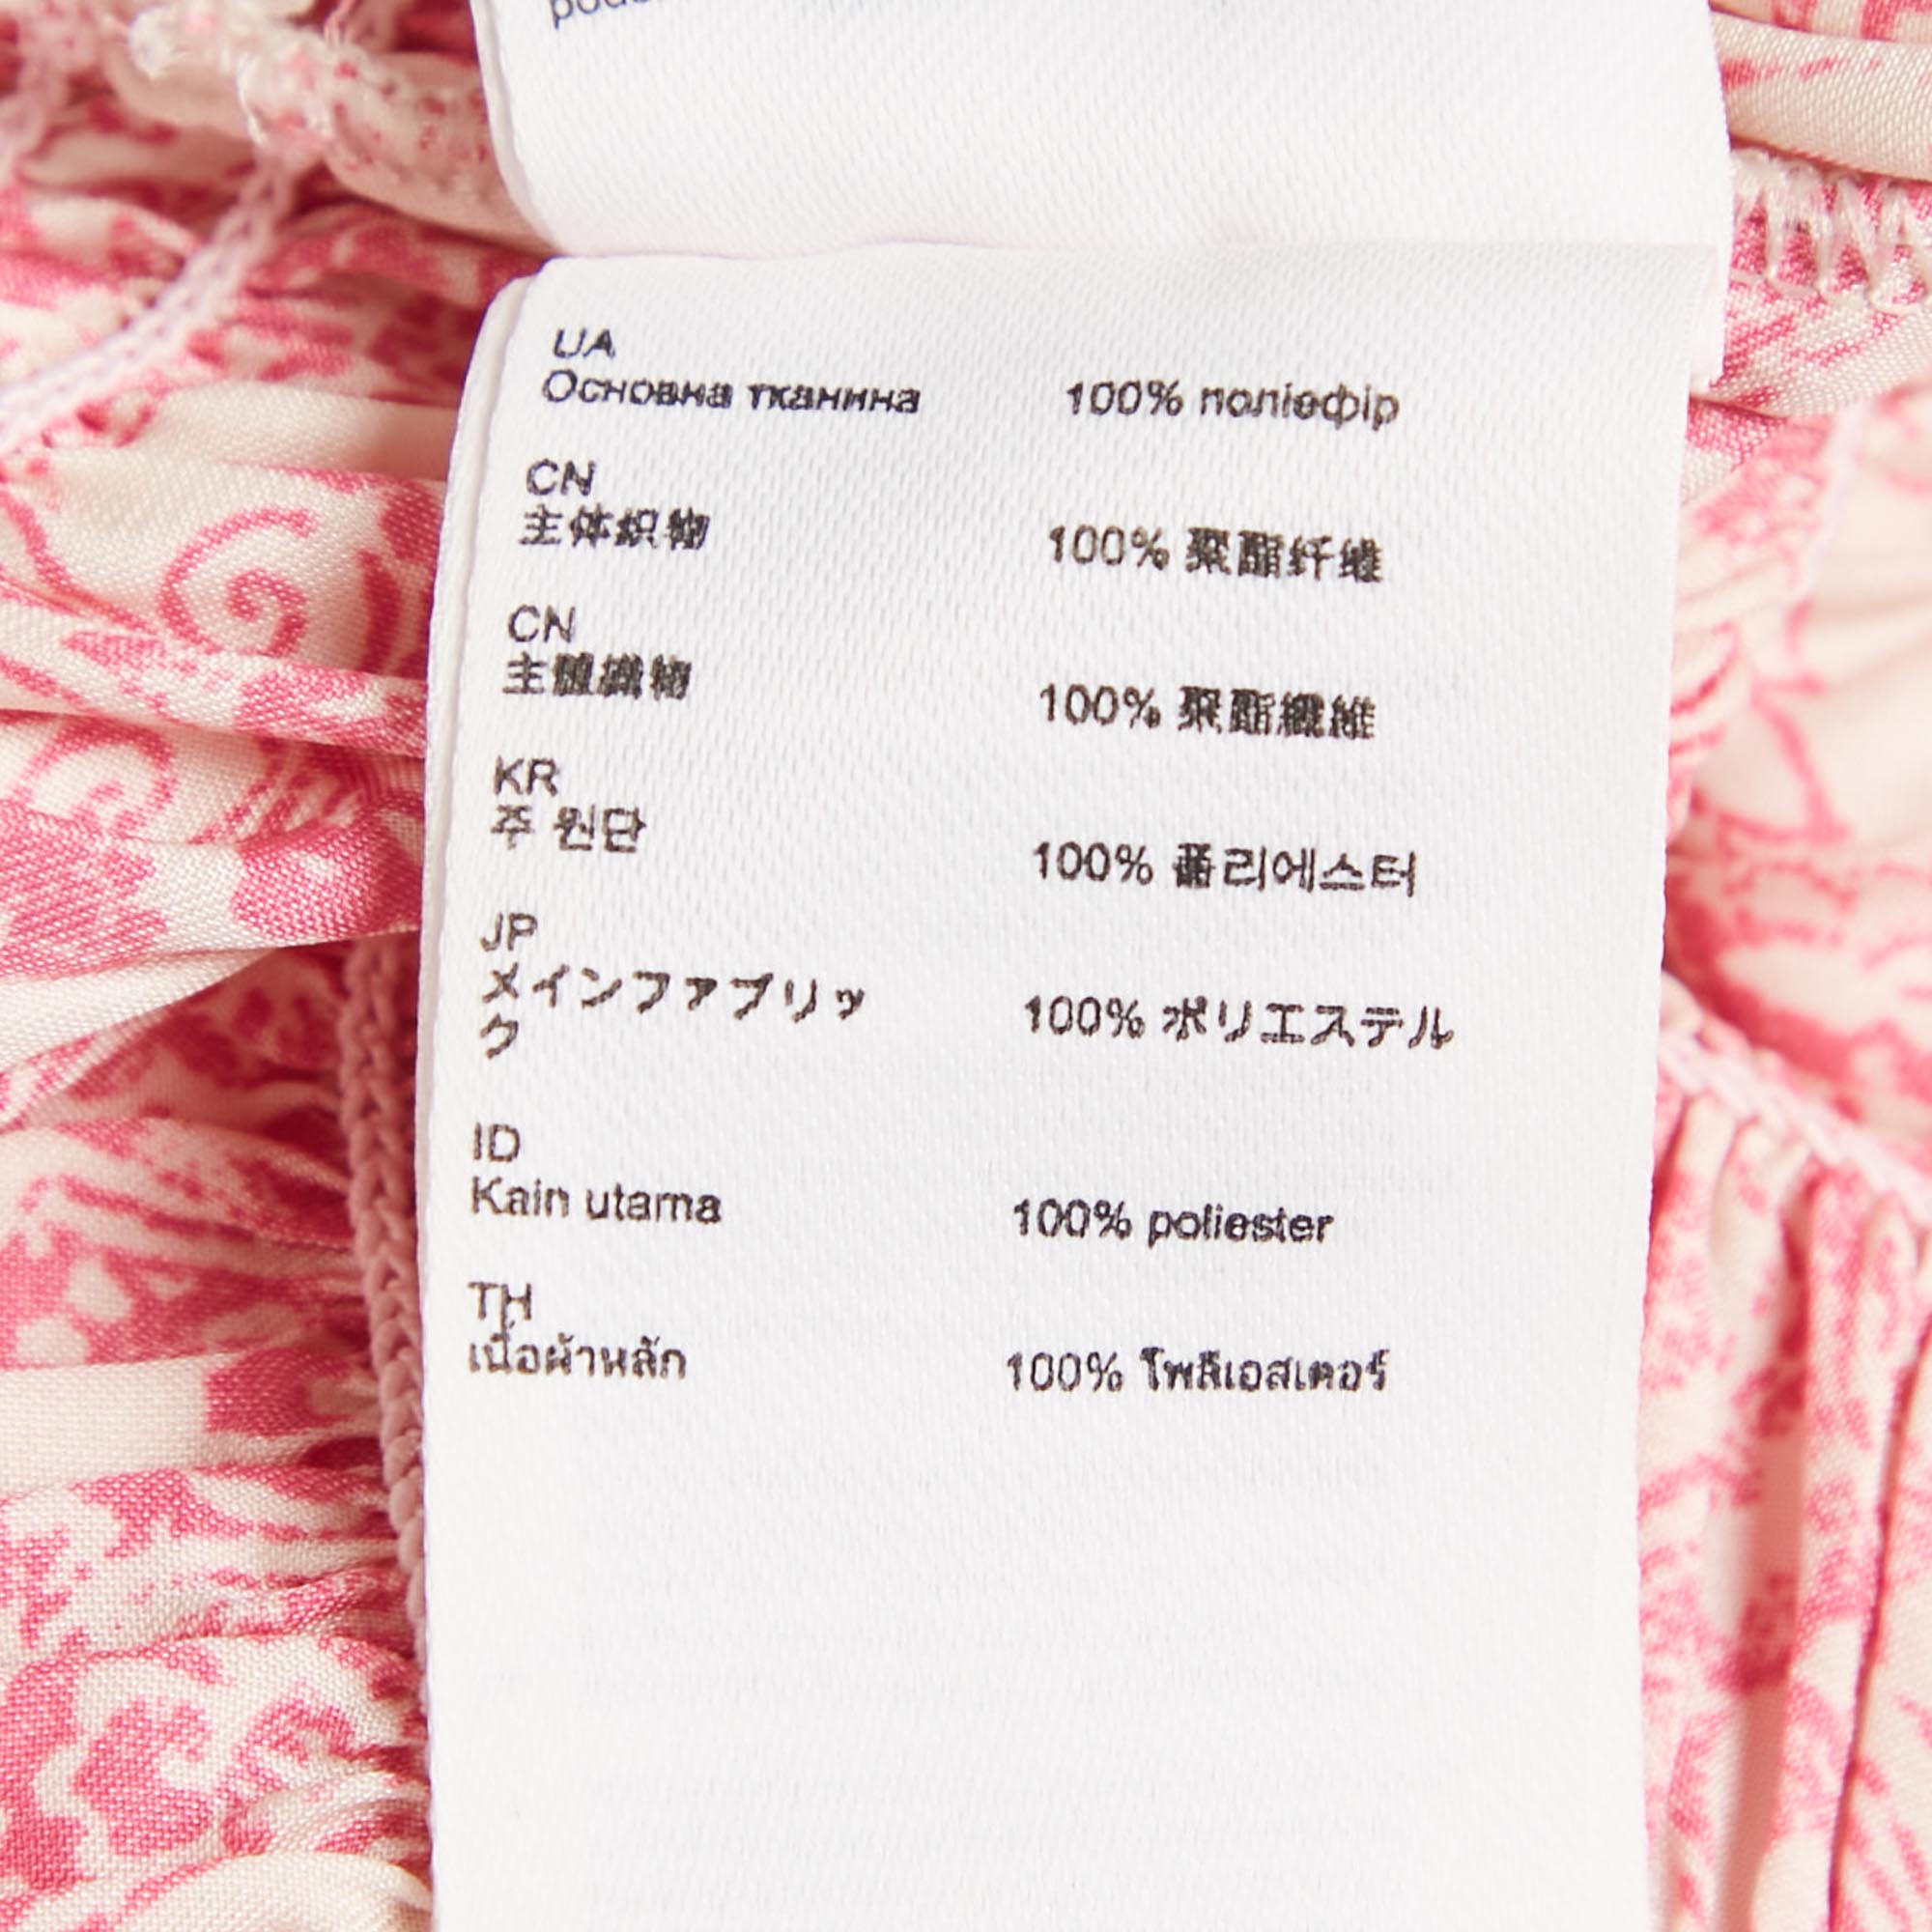 UA
Основна тканина 100% поліефір
CN
主体织物 100% 聚酯纤维
CN
主體織物 100% 聚酯纖維
KR
주 원단 100% 폴리에스터
JP
メインファブリッ
ク 100% ポリエステル
ID
Kain utama 100% poliester
TH
เนื้อผ้าหลัก 100% โพลีเอสเตอร์